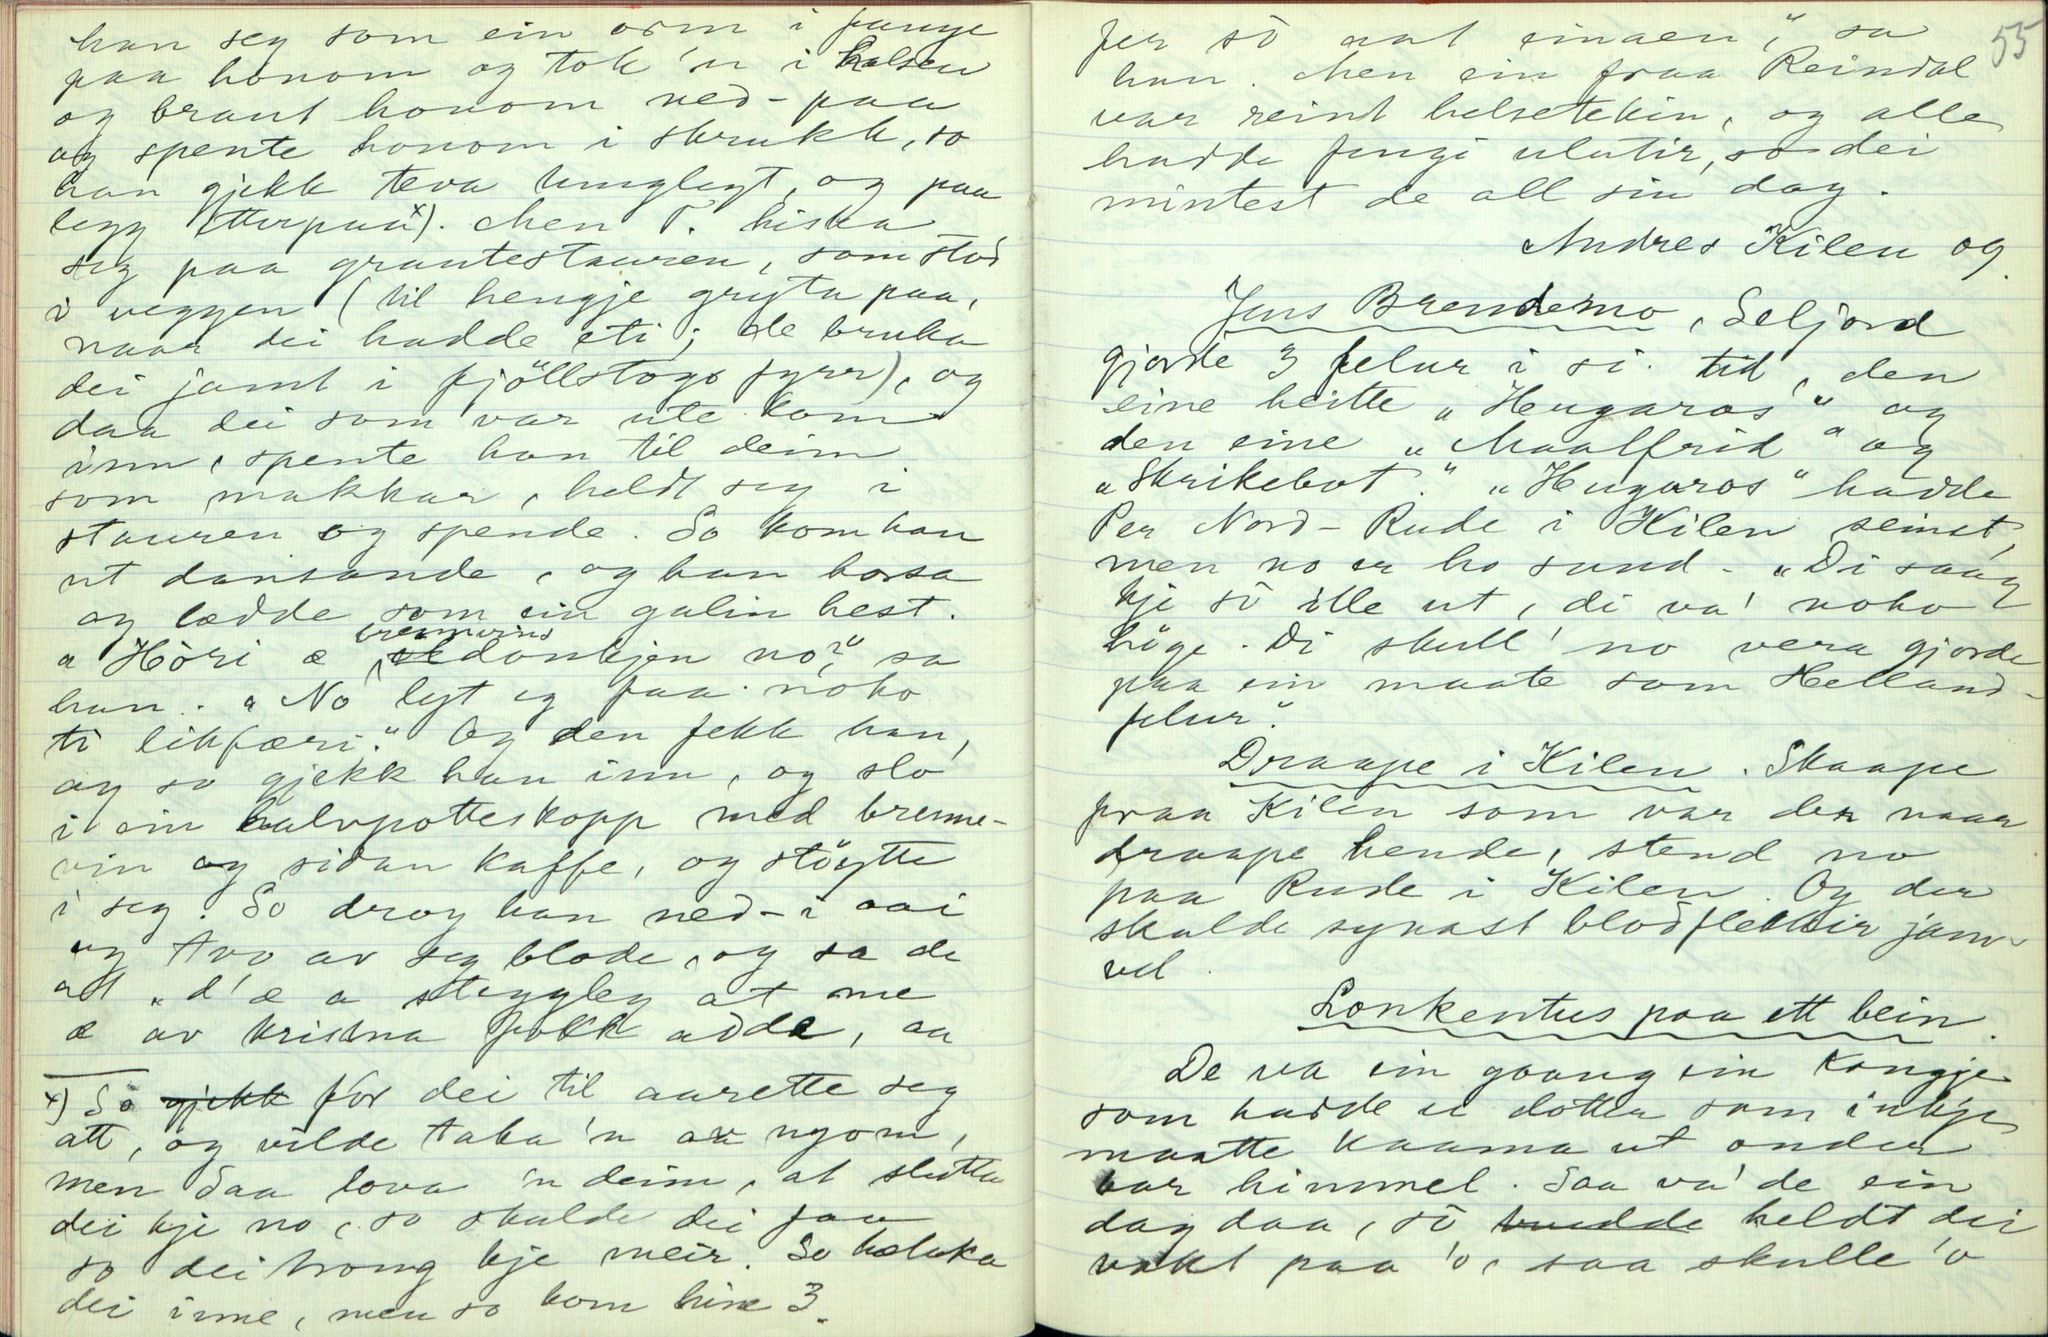 han seg som ein orm i fange
paa honom og tok 'n i halsen
og braut honom ned-paa
og spente honom i skrukk, so
han gjekk teva tunglegt, og paa
legg etterpaa x). Men T. hiska
seg paa grautestauren, som stod
i veggen (til hengje gryta paa,
naar dei hadde eti; de bruka
dei jamt i fjöllstogo fyrr), og
daa dei som var ute kom
inn, spente han til deim
som makkar, heldt seg i
stauren og spende. So kom han
ut dansande, og han hossa
og lædde som ein galin hest.
„Höri æ brennvins donkjen no?" sa
han. „No lyt eg faa noko
ti likfæri." Og den fekk han,
og so gjekk han inn, og slo
i ein halvpotteskopp med brenne-
vin og sidan kaffe, og stöytte
i seg. So drog han ned-i aai
og tvo av seg blode, og sa de
at „d'æ a steggleg at me
æ av kristna folk adde, aa
x) So gjekk for dei til aarette seg
att, og vilde taka 'n av nyom,
men daa lova 'n deim, at slutta
dei kje no, so skulde dei faa
so dei trong kje meir. So
dei inne, men so kom hine 3.
55
fer sö aat einaen", sa
han. Men ein fraa Reindal
var reint helsetekin, og alle
hadde fengi ulutir, so dei
mintest de all sin dag.
Andres Kilen og
Jens Brendemo, Seljord
gjorde 3 felur i si tid, den
eine heitte „Hugaros" og
den eine „Maalfrid" og
„Skrikebot." „Hugaros" hadde
Per Nord-Rude i Kilen seinst,
men no er ho sund. „Di saag
kje sö ille ut, di va' noko
höge. Di skull' no vera gjorde
paa ein maate som Helland-
felur".
Draape i Kilen. Skaape
fraa Kilen som var der naar
draape hende, stend no
paa Rude i Kilen. Og der
skulde synast blodflekkir jam-
vel.
Lonkentus paa ett bein.
De va ein goang ein kongje
som hadde ei dotter som inkje
maatte kaama ut onder
bar himmel. Saa va' de ein
dag daa, sö hadde heldt dei
vakt paa 'o, saa skulle 'o